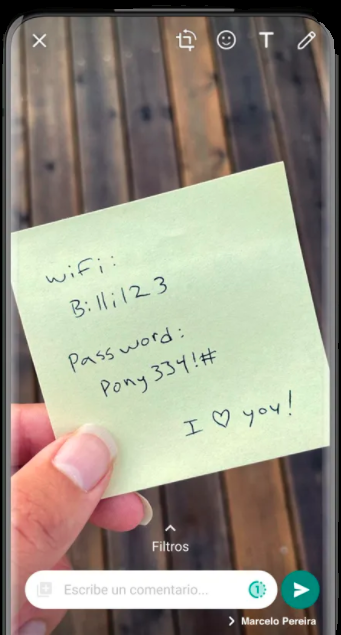 T
wiFi:
Billi123
Password:
Pony334!#
I ♡ you!
Filtros
Escribe un comentario...
1
Marcelo Pereira